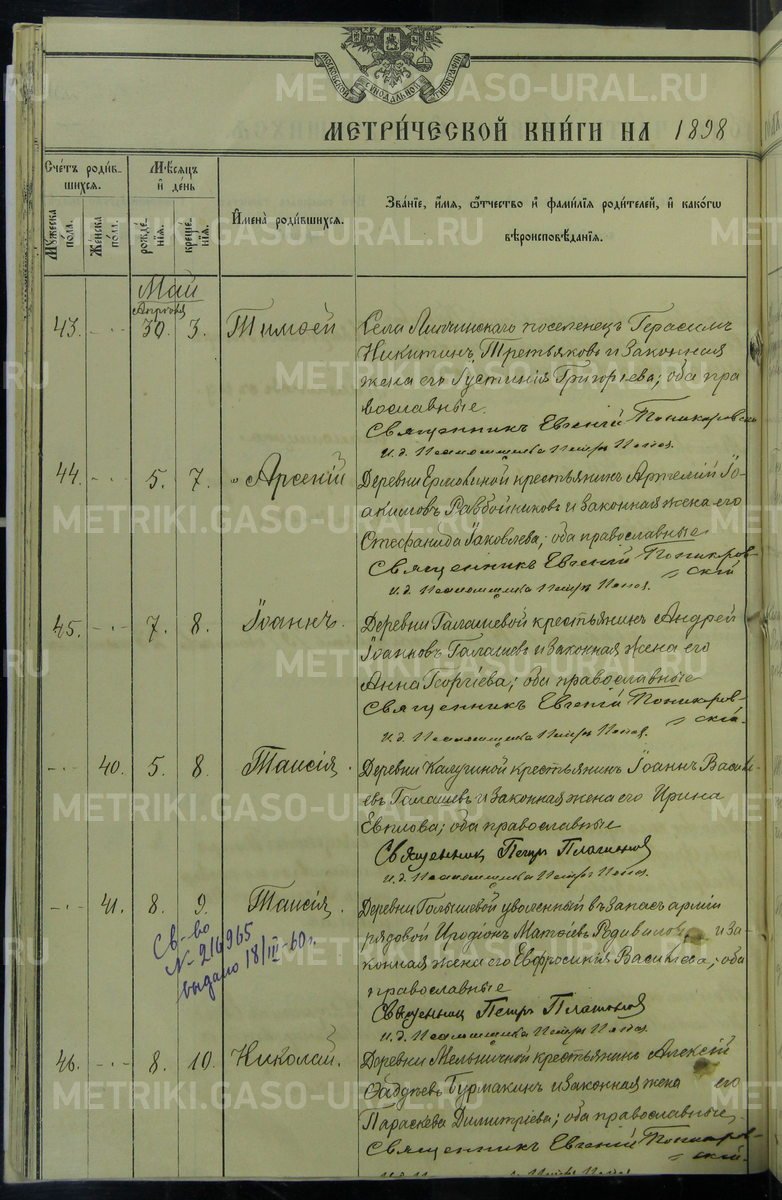 МОСКОВСКОЙ СѴНОДАЛЬНОЙ ТИПОГРАФІИ
МЕТРИ́ЧЕСКОЙ КНИ́ГИ НА 1898
Сче́тъ роди́в-
шихся.
Му́жеска по́ла.
Же́нска по́ла.
Мѣ́сяцъ
и҆ де́нь
рожде́-
нїѧ.
креще́-
нїѧ.
И҆мена̀ роди́вшихся.
Зва́нїе, и҆́мя, ѻ҆́тчество и҆ фами́лїя роди́телей, и҆ како́гѡ
вѣроисповѣ́данїя.
Май
Апрѣля
43. - . - 30. 3. Тимоѳей
Села Липчинскаго поселенецъ Герасимъ
Никитинъ Третьяковъ и законная
жена его Іустинія Григоріева; оба пра
вославные.
Священникъ Евгеній Поникаровскій
и. д. Псаломщика Петръ Попов.
44. - . - 5. 7. Арсеній
Деревни Ермакиной крестьянинъ Артемій Іо-
акимовъ Разбойниковъ и законная жена его
Стефанида Іаковлева; оба православные
Священникъ Евгеній Поникаров-
скій
и. д. Псаломщика Петръ Попов.
45. - . - 7. 8. Іоаннъ.
Деревни Галашевой крестьянинъ Андрей
Іоанновъ Галашевъ и законная жена его
Анна Георгіева; оба православные
Священникъ Евгеній Поникаров-
скій.
и. д. Псаломщика Петръ Попов.
- . - 40. 5. 8. Таисія.
Деревни Калугиной крестьянинъ Іоаннъ Василь
евъ Галашевъ и законная жена его Ирина
Евплова; оба православные
Священник Петръ Платонов
и. д. Псаломщика Петръ Попов.
- . - 41. 8. 9. Таисія.
Св-во
№ 216965
выдано 18/III-60 г.
Деревни Голышевой уволенный въ запасъ арміи
рядовой Иродіонъ Матѳіевъ и за-
конная жена его Евфросинія Василіева; оба
православные
Священник Петръ Платонов
и. д. Псаломщика Петръ Попов.
46. - . - 8. 10. Николай.
Деревни Мельничной крестьянинъ Алексій
Ѳаддѣевъ Бурмакинъ и законная жена его
Параскева Димитріева; оба православные.
Священникъ Евгеній Поникаров-
скій.
METRIKI.GASO-URAL.RU